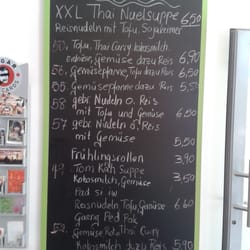 XXL Thai Nuelsuppe 6,50
Reisnudeln mit Tofu, Sojakeimer
50. Tofu, Thai Curry, kokosmilch
erdnüsse, Gemüse dazu Reis 6,90
56. Gemüsepfanne, Tofu, dazu Reis 6,50
55. Gemüsepfanne dazu Reis 5,50
58 gebr. Nudeln o. Reis
mit Tofu und Gemüse 6,50
57 gebr. Nudeln o. Reis
mit Gemüse 5,50
Frühlingsrollen 3,90
49. Tom Kah Suppe
Kokosmilch, Gemüse 3,50
Pad si iw
Reisnudeln Tofu, Gemüse 6,60
Gaeng Ped Pak
52. Gemüse Rote Thai Curry
Kokosmilch dazu Reis 5,90